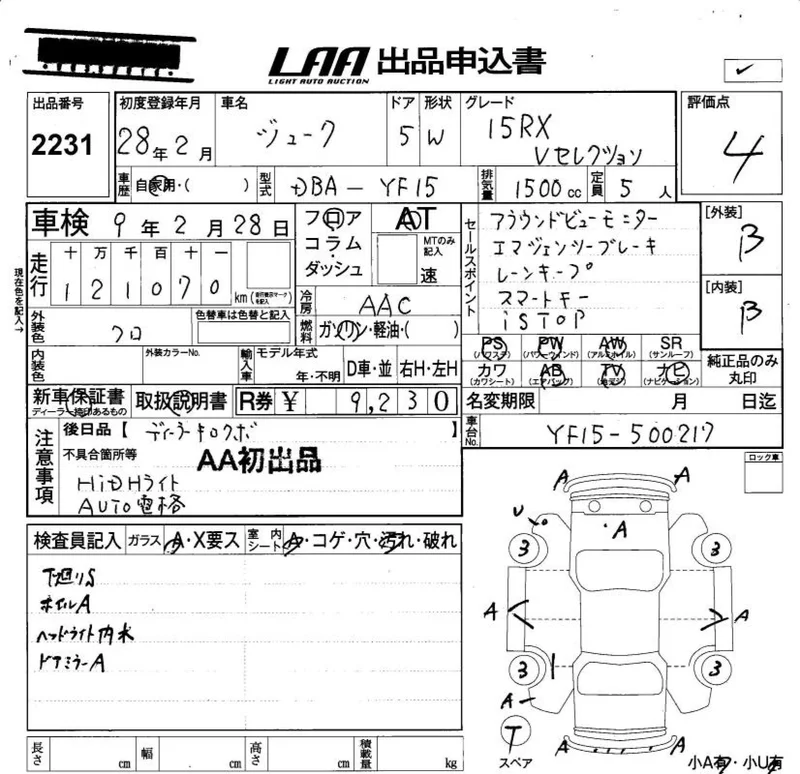 LAA 出品申込書
LIGHT AUTO AUCTION
出品番号 初度登録年月 車名 ドア 形状 グレード 評価点
2231 28年2月 ジューク 5 W 15RX Vセレクション 4
車歴 自家用・( ) 型式 DBA-YF15 排気量 1500cc 定員 5人
車検 9年2月28日 フロア AT セールスポイント アラウンドビューモニター [外装] B
走行 十 万 千 百 十 一 コラム・ MTのみ記入 エマジェンシーブレーキ
現在色を記入→ 1 2 1 0 7 0 km (走行表示マークを記入) ダッシュ 速 レーンキープ [内装] B
外装色 クロ 色替車は色替と記入 冷房 AAC スマートキー
燃料 ガソリン・軽油・( ) iSTOP
内装色 外装カラーNo. 輸入車 モデル年式 年・不明 D車・並 右H・左H
PS (パワステ) PW (パワーウインド) AW (アルミホイル) SR (サンルーフ) 純正品のみ丸印
カワ (カワシート) AB (エアバッグ) TV ナビ (ナビゲーション)
新車保証書 ディーラー捺印あるもの 取扱説明書 R券 ¥ 9,230 名変期限 月 日迄
注意事項 後日品【 ディーラーキロクボ 】 車台No. YF15-500217
不具合箇所等 AA初出品 ロック車
HiDHライト
AUTO電格
検査員記入 ガラス A・X要ス 室内シート A・コゲ・穴・汚れ・破れ
下廻りS
ホイルA
ヘッドライト内水
ドアミラーA
A A
U A
3 3
A A
3 3
A
T
スペア
A A
小A有・小U有
長さ cm 幅 cm 高さ cm 積載量 kg